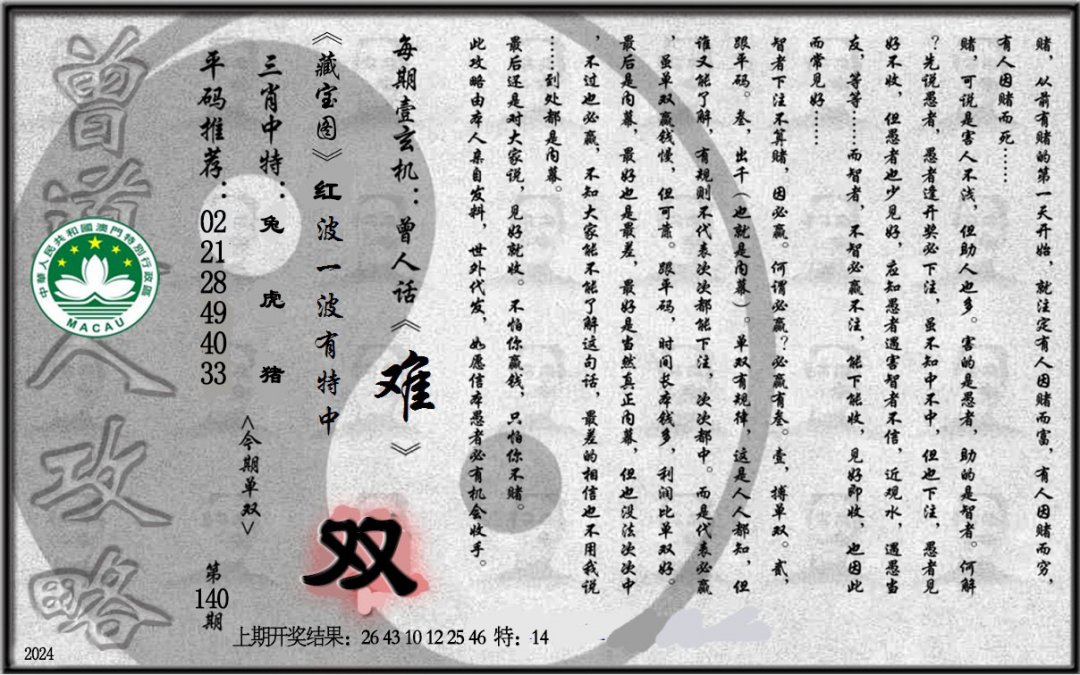 赌，从前有赌的第一天开始，就注定有人因赌而富，有人因赌而穷，
有人因赌而死……
赌，可说是害人不浅，但助人也多。害的是愚者，助的是智者。何解
？先说愚者，愚者逢开奖必下注，虽不知中不中，但也下注，愚者见
好不收，但愚者也少见好，应知愚者遇害智者不信，近观水，遇愚当
友，等等……而智者，不智必赢不注，能下能收，见好即收，也因此
而常见好……
智者下注不算赌，因必赢。何谓必赢？必赢有叁。壹，搏单双。贰，
跟平码。叁，出千（也就是内幕）。单双有规律，这是人人都知，但
谁又能了解，有规则不代表次次都能下注，次次都中。而是代表必赢
，虽单双赢钱慢，但可靠。跟平码，时间长本钱多，利润比单双好。
最后是内幕，最好也是最差，最好是当然真正内幕，但也没法次次中
，不过也必赢，不知大家能不能了解这句话，最差的相信也不用我说
……到处都是内幕。
最后还是对大家说，见好就收。不怕你赢钱，只怕你不赌。
此攻略由本人亲自发料，世外代发，如愿信本愚者必有机会收手。
每期壹玄机：曾人话《难》
《藏宝图》红波一波有特中
双
三肖中特：兔 虎 猪
<今期单双>
平码推荐：02 21 28 49 40 33
第140期
曾道人攻略
中華人民共和國澳門特別行政區
MACAU
上期开奖结果：26 43 10 12 25 46 特：14
2024